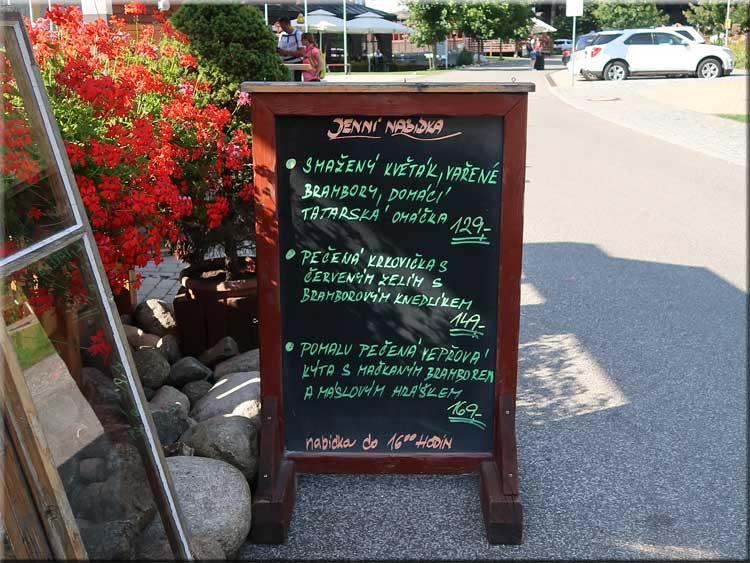 JENNÍ NABÍDKA
SMAŽENÝ KVĚTÁK, VAŘENÉ
BRAMBORY, DOMÁCÍ
TATARSKÁ OMÁČKA 129,-
PEČENÁ KRKOVIČKA S
ČERVENÝM ZELÍM S
BRAMBOROVÝM KNEDLÍKEM
149,-
POMALU PEČENÁ VEPŘOVÁ
KÝTA S MAČKANÝM BRAMBOREM
A MÁSLOVÝM HRÁŠKEM
169,-
nabídka do 16⁰⁰ HODIN